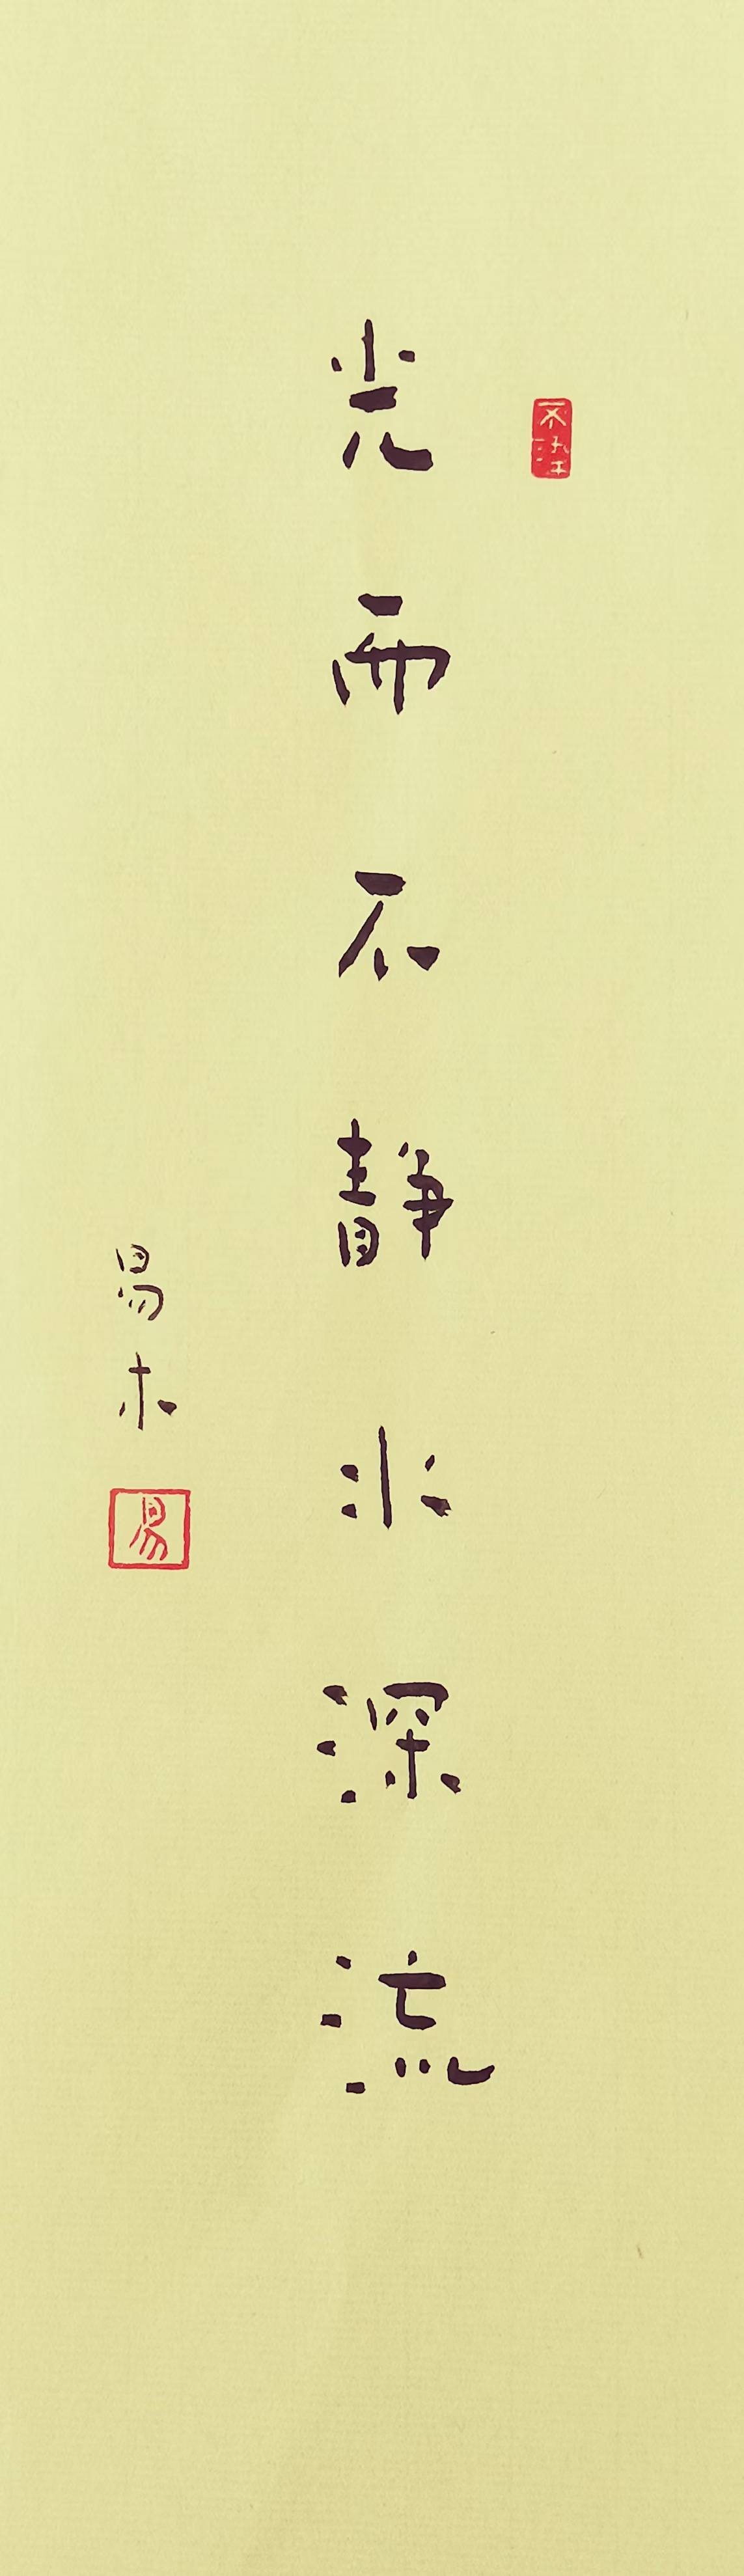 光而不静水深流
易木
易